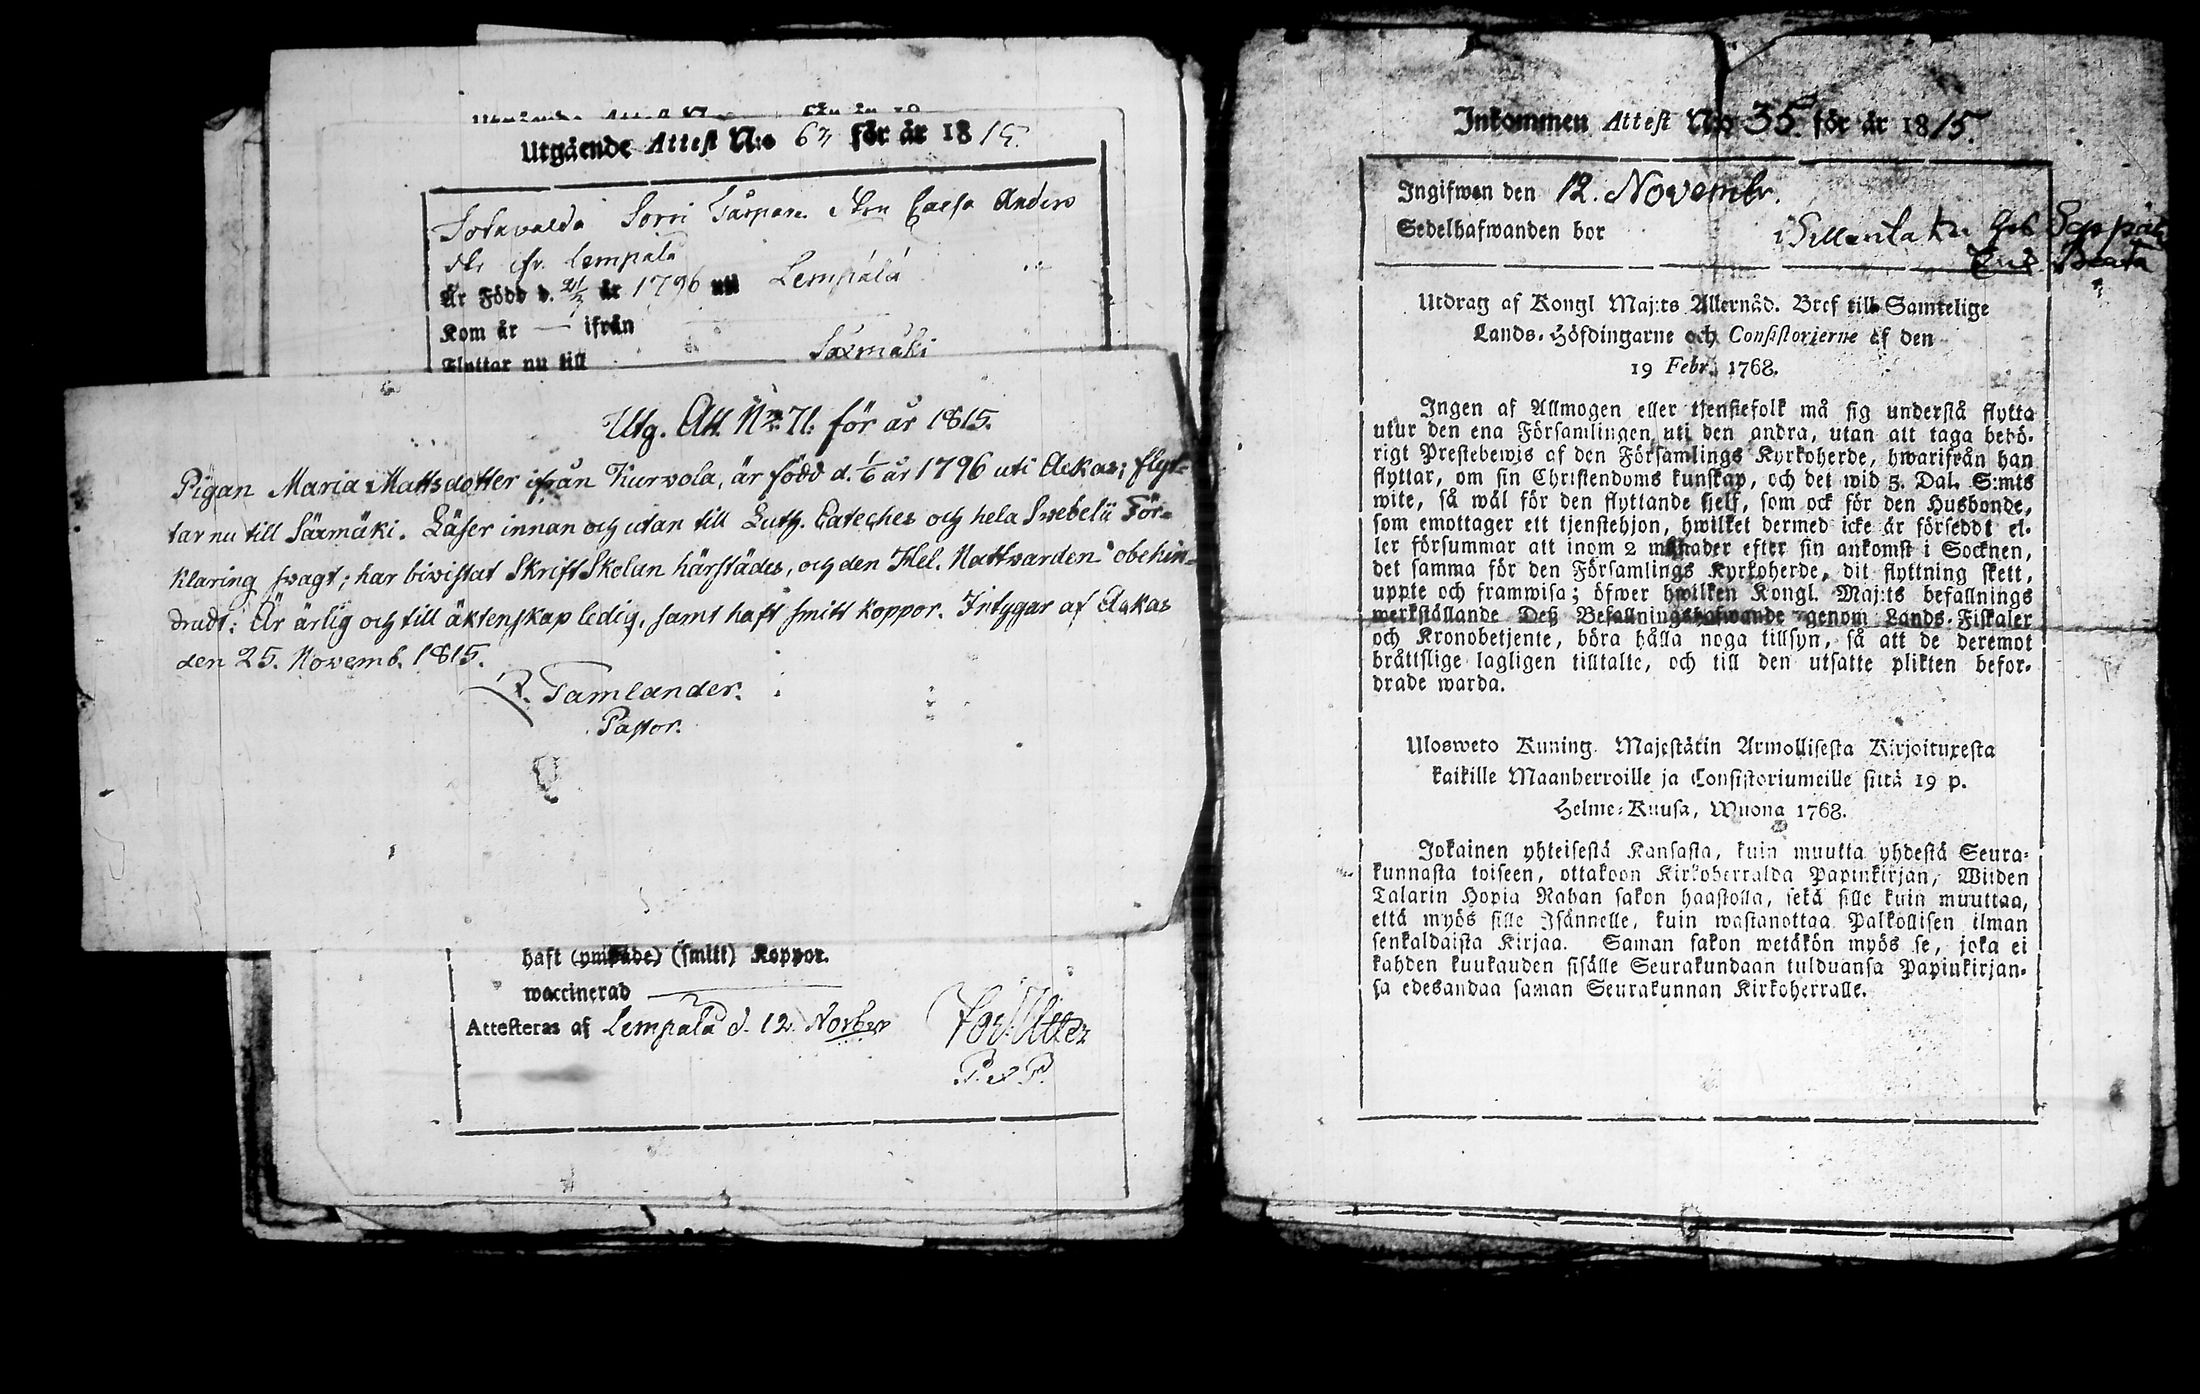 Utgående Attest N:o 63 för år 1815.
Sotavalda Sorri Piga Caisa Anders
dtr ifr. Lempälä
Är Född d. 21/7 år 1796 uti Lempälä
Kom år — ifrån
Flyttar nu till Säxmäki
Utg. Att. Nr. 71. för år 1815.
Pigan Maria Mattsdotter ifrån Kurvola, är född d. 1/6 år 1796 uti Ackas; flyt-
tar nu till Säxmäki. Läser innan och utan till Luth. Cateches och hela Swebelii För-
klaring swagt; har biwistat SkriftSkolan härstädes, och den Hel. Nattwarden obehin-
dradt: Är ärlig och till äktenskap ledig, samt haft smitt koppor. Intygar af Ackas
den 25. Novemb. 1815.
Tamlander.
Pastor.
haft (ympade) (smitt) Koppor.
waccinerad
Attesteras af Lempälä d. 12. Norber
P. et P.
Inkommen Attest N:o 35. för år 1815.
Ingifwen den 12. Novembr.
Sedelhafwanden bor
Utdrag af Kongl Maj:ts Allernåd. Bref till Samtelige
Lands-Höfdingarne och Consistorierne af den
19 Febr. 1768.
Ingen af Allmogen eller tjenstefolk må sig understå flytta
utur den ena Församlingen uti den andra, utan att taga behö-
rigt Prestebewis af den Församlings Kyrkoherde, hwarifrån han
flyttar, om sin Christendoms kunskap, och det wid 5. Dal. S:mts
wite, så wäl för den flyttande sjelf, som ock för den Husbonde,
som emottager ett tjenstehjon, hwilket dermed icke är försedt el-
ler försummar att inom 2 månader efter sin ankomst i Socknen,
det samma för den Församlings Kyrkoherde, dit flyttning skett,
uppte och framwisa; öfwer hwilken Kongl. Maj:ts befallnings
werkställande Deß Befallningshafwande genom Lands-Fiskaler
och Kronobetjente, böra hålla noga tillsyn, så att de deremot
bråttslige lagligen tilltalte, och till den utsatte plikten befor-
drade warda.
Ulosweto Kuning. Majestätin Armollisesta Kirjoituxesta
kaikille Maanherroille ja Consistoriumeille siitä 19 p.
Helme-Kuusa, Wuona 1768.
Jokainen yhteisestä Kansasta, kuin muutta yhdestä Seura-
kunnasta toiseen, ottakoon Kirkoherralda Papinkirjan, Wiiden
Talarin Hopia Rahan sakon haastolla, sekä sille kuin muuttaa,
että myös sille Isännelle, kuin wastanottaa Palkollisen ilman
senkaldaista Kirjaa. Saman sakon wetäkön myös se, joka ei
kahden kuukauden sisälle Seurakundaan tulduansa Papinkirjan-
sa edesandaa saman Seurakunnan Kirkoherralle.